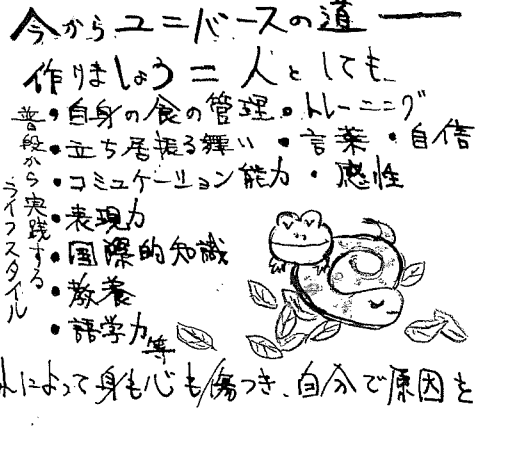 今からユニバースの道 ——
作りましょう＝人としても
普段から実践する
ライフスタイル
・自身の食の管理・トレーニング
・立ち居振る舞い ・言葉 ・自信
・コミュケーション能力 ・感性
・表現力
・国際的知識
・教養
・語学力 等
れによって身も心も傷つき、自分で原因を